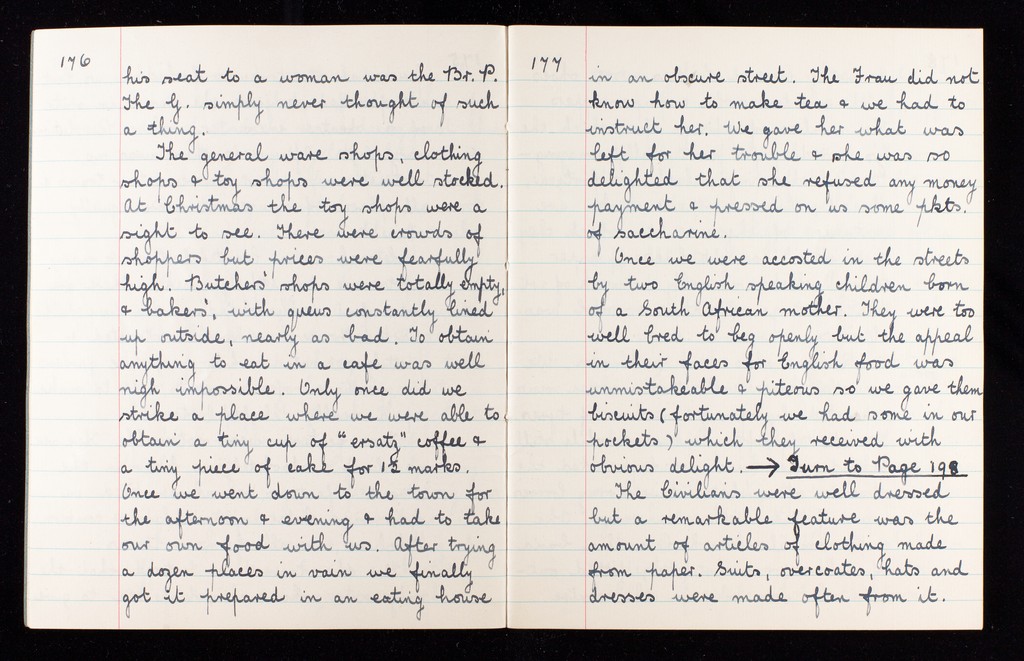 176
his seat to a woman was the Br. P.
The G. simply never thought of such
a thing.
The general ware shops, clothing
shops & toy shops were well stocked.
At Christmas the toy shops were a
sight to see. There were crowds of
shoppers but prices were fearfully
high. Butchers' shops were totally empty,
& bakers', with queus constantly lined
up outside, nearly as bad. To obtain
anything to eat in a cafe was well
nigh impossible. Only once did we
strike a place where we were able to
obtain a tiny cup of "ersatz" coffee &
a tiny piece of cake for 1½ marks.
Once we went down to the town for
the afternoon & evening & had to take
our own food with us. After trying
a dozen places in vain we finally
got it prepared in an eating house
177
in an obscure street. The Frau did not
know how to make tea & we had to
instruct her. We gave her what was
left for her trouble & she was so
delighted that she refused any money
payment & pressed on us some pkts.
of saccharine.
Once we were accosted in the streets
by two English speaking children born
of a South African mother. They were too
well bred to beg openly but the appeal
in their faces for English food was
unmistakeable & piteous so we gave them
biscuits (fortunately we had some in our
pockets) which they received with
obvious delight. → Turn to Page 198
The Civilians were well dressed
but a remarkable feature was the
amount of articles of clothing made
from paper. Suits, overcoats, hats and
dresses were made often from it.